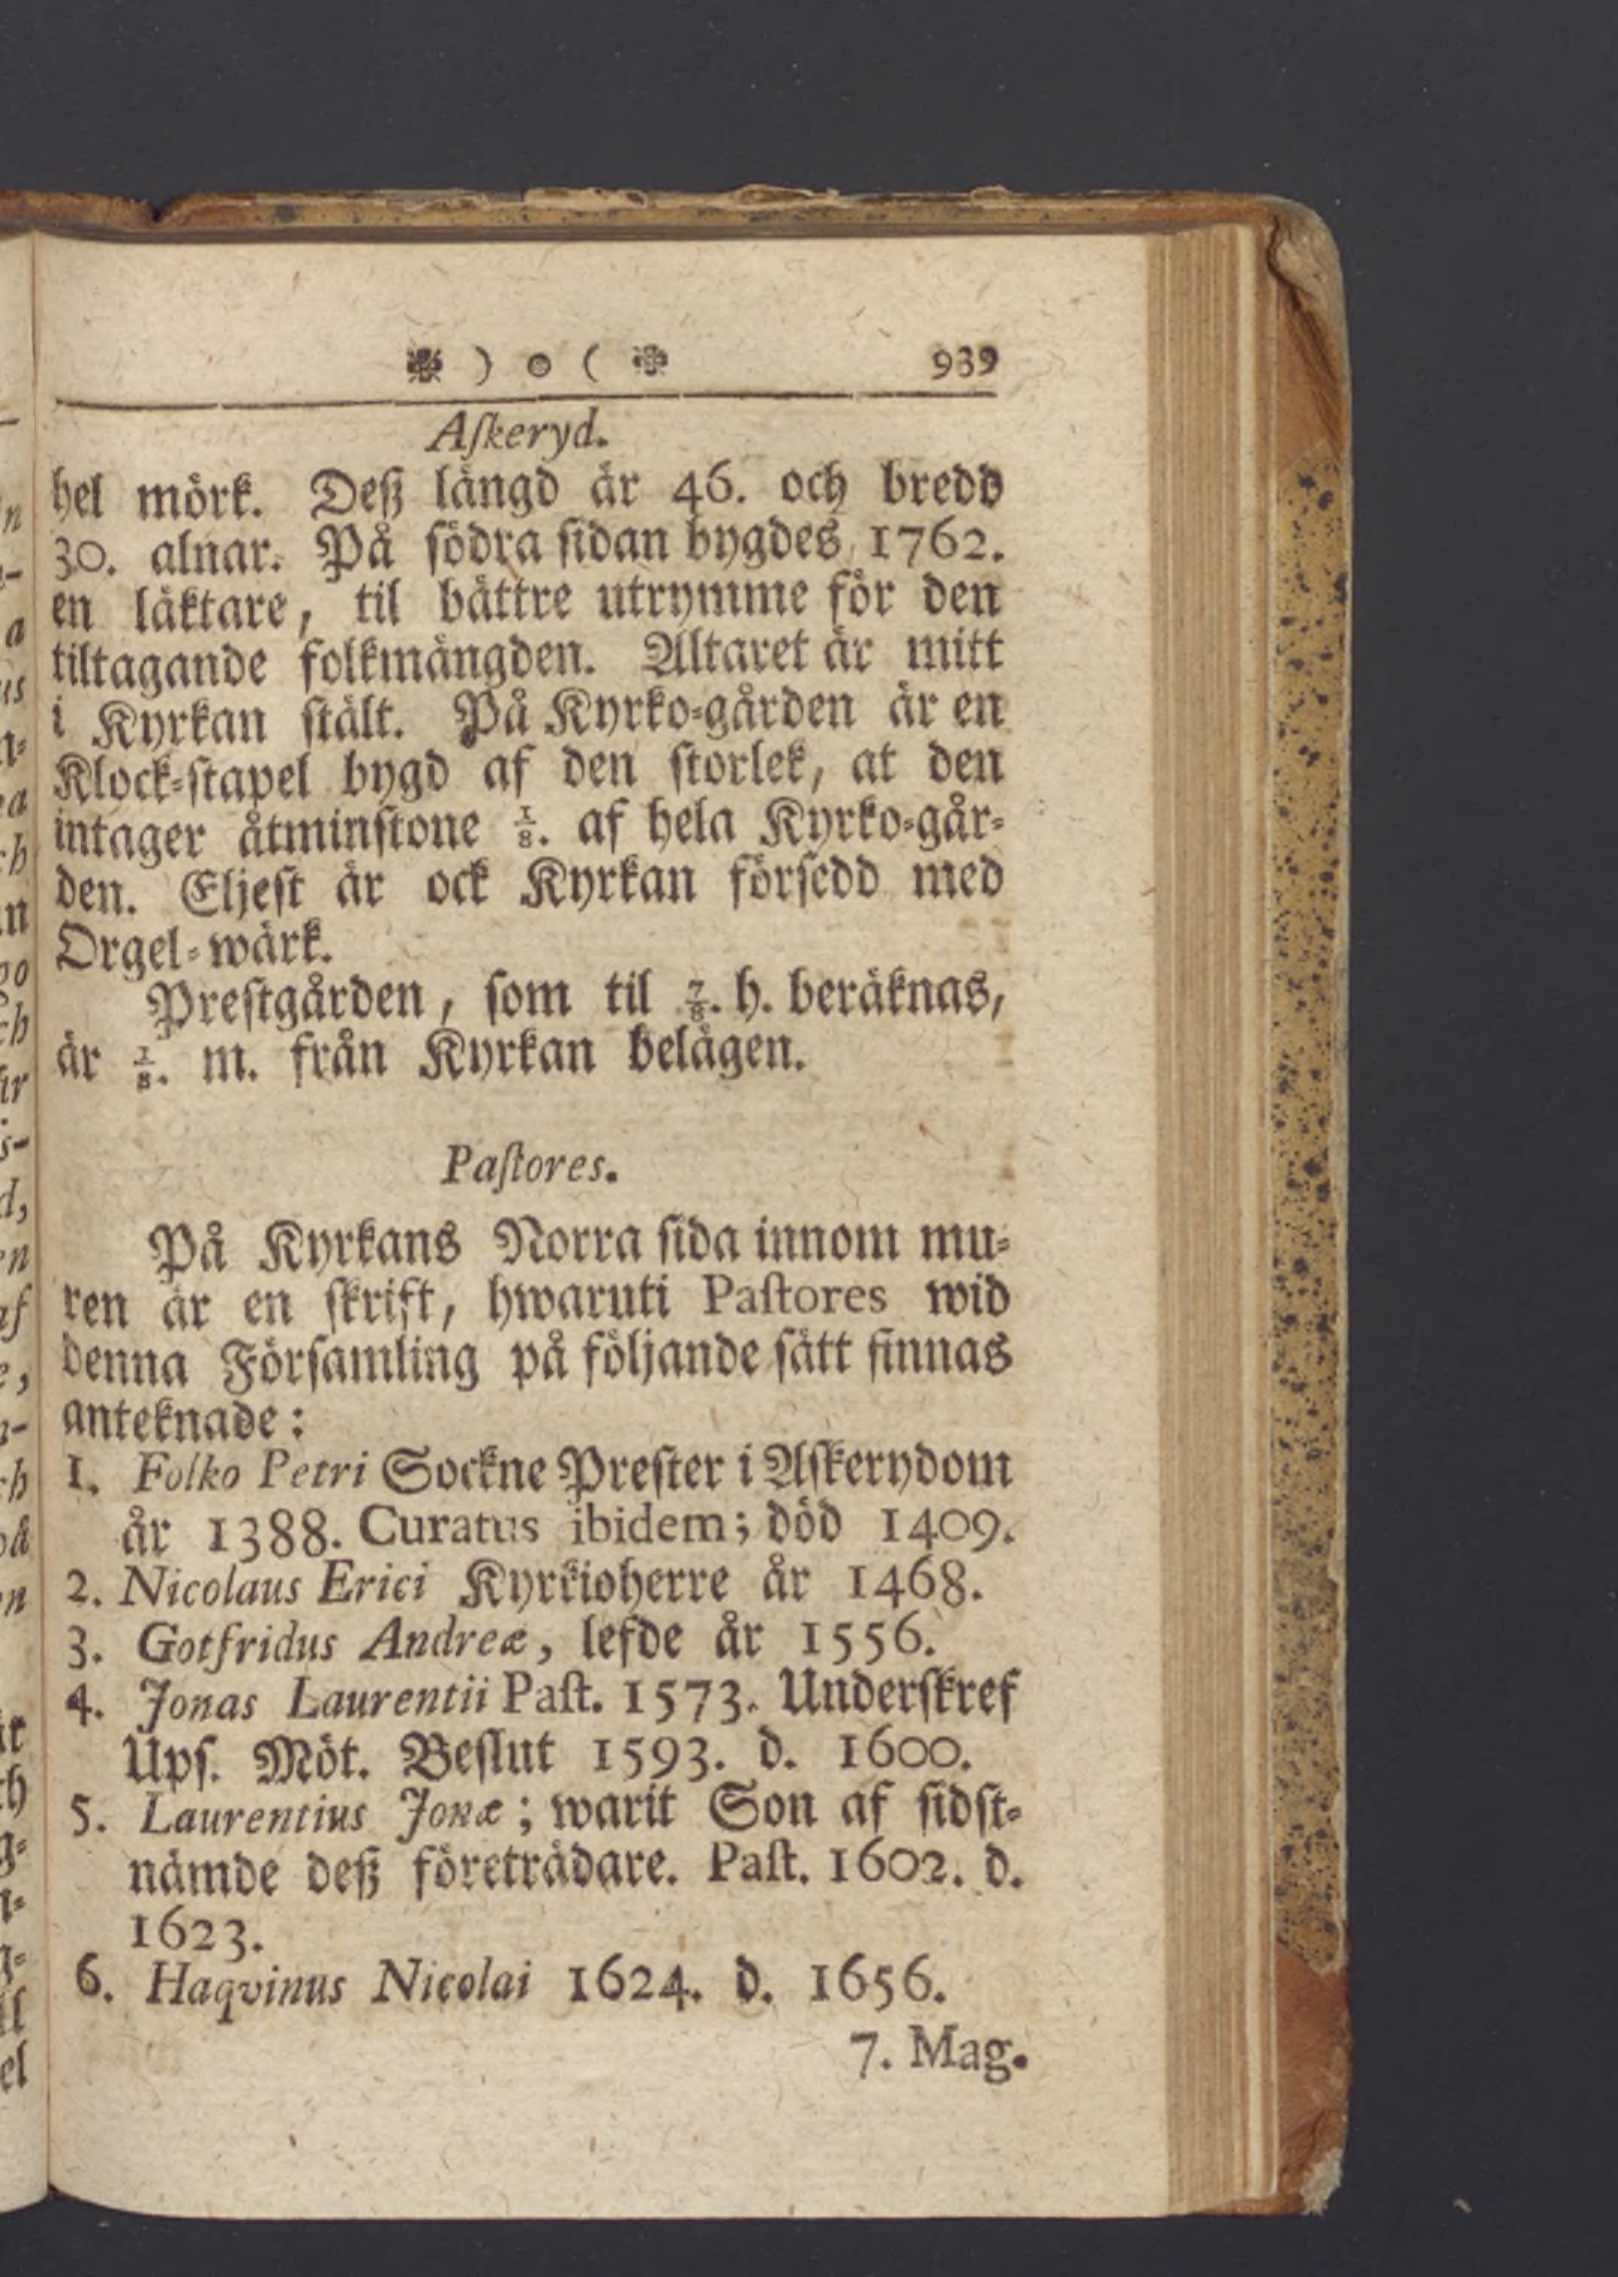 ❉ ) o ( ❉ 939
Aſkeryd.
hel mörk. Deß längd är 46. och bredd
30. alnar. På ſödra ſidan bygdes 1762.
en läktare, til bättre utrymme för den
tiltagande folkmängden. Altaret är mitt
i Kyrkan ſtält. På Kyrko-gården är en
Klock-ſtapel bygd af den ſtorlek, at den
intager åtminſtone 1/8. af hela Kyrko-går-
den. Eljeſt är ock Kyrkan förſedd med
Orgel-wärk.
Preſtgården, ſom til 7/8. h. beräknas,
är 1/8. m. från Kyrkan belägen.
Paſtores.
På Kyrkans Norra ſida innom mu-
ren är en ſkrift, hwaruti Paſtores wid
denna Förſamling på följande ſätt finnas
anteknade:
1. Folko Petri Sockne Preſter i Aſkerydom
år 1388. Curatus ibidem; död 1409.
2. Nicolaus Erici Kyrkioherre år 1468.
3. Gotfridus Andreæ, lefde år 1556.
4. Jonas Laurentii Paſt. 1573. Underſkref
Upſ. Möt. Beſlut 1593. d. 1600.
5. Laurentius Jonæ; warit Son af ſidſt-
nämde deß företrädare. Paſt. 1602. d.
1623.
6. Haqvinus Nicolai 1624. d. 1656.
7. Mag.